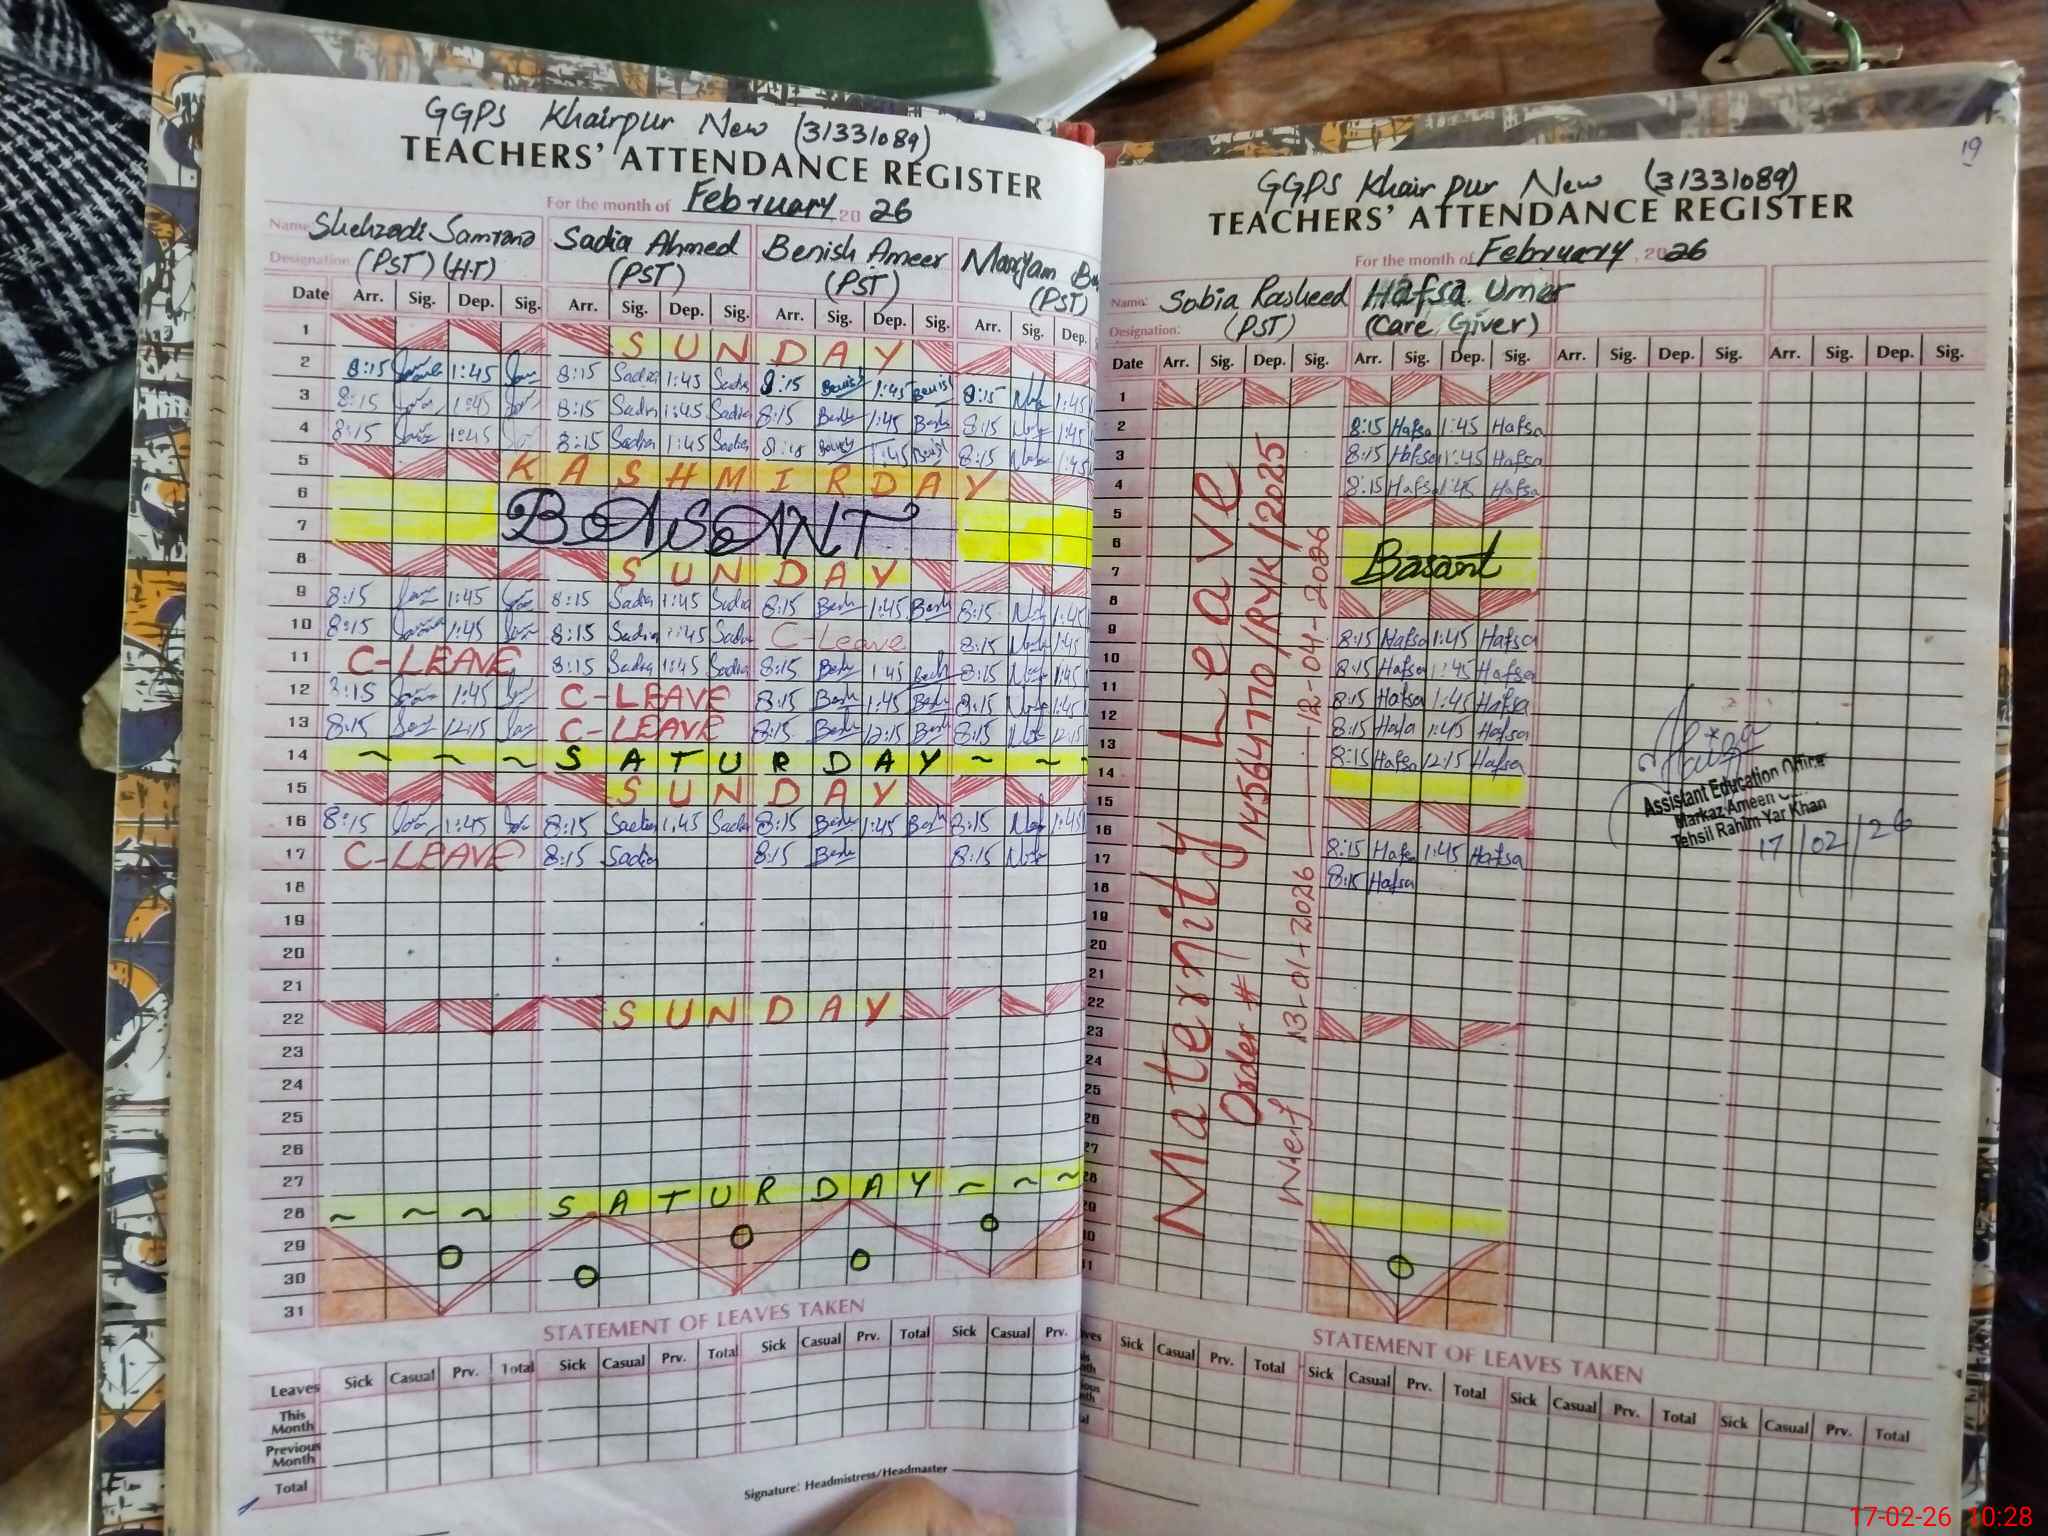 GGPS Khairpur New (31331089)
TEACHERS' ATTENDANCE REGISTER
For the month of February 20 26
Name Shehzadi Samrana Sadia Ahmed Benish Ameer Maryam
Designation: (PST) (H.T) (PST) (PST) (PST)
Date Arr. Sig. Dep. Sig. Arr. Sig. Dep. Sig. Arr. Sig. Dep. Sig. Arr. Sig. Dep.
1 SUNDAY
2 8:15 1:45 8:15 Sadia 1:45 Sadia 8:15 Benish 1:45 Benish 8:15 1:45
3 8:15 1:45 8:15 Sadia 1:45 Sadia 8:15 1:45 8:15 1:45
4 8:15 1:45 8:15 Sadia 1:45 Sadia 1:45 8:15 1:45
5 KASHMIR DAY
6
7 BASANT
8 SUNDAY
9 8:15 1:45 8:15 Sadia 1:45 Sadia 8:15 1:45 8:15 1:45
10 8:15 1:45 8:15 Sadia 1:45 Sadia C-Leave 8:15 1:45
11 C-LEAVE 8:15 Sadia 1:45 Sadia 8:15 1:45 8:15 1:45
12 8:15 1:45 C-LEAVE 8:15 1:45 8:15 1:45
13 8:15 12:15 C-LEAVE 8:15 12:15 8:15 12:15
14 ~ ~ ~ SATURDAY ~ ~
15 SUNDAY
16 8:15 1:45 8:15 Sadia 1:45 Sadia 8:15 1:45 8:15 1:45
17 C-LEAVE 8:15 Sadia 8:15 8:15
18
19
20
21
22 SUNDAY
23
24
25
26
27
28 ~ ~ ~ SATURDAY ~ ~ ~
29
30
31
STATEMENT OF LEAVES TAKEN
Leaves Sick Casual Prv. Total Sick Casual Prv. Total Sick Casual Prv. Total Sick Casual Prv.
This Month
Previous Month
Total
Signature: Headmistress/Headmaster
19
GGPS Khairpur New (31331089)
TEACHERS' ATTENDANCE REGISTER
For the month of February 2026
Name: Sobia Rasheed Hafsa Umer
Designation: (PST) (Care Giver)
Date Arr. Sig. Dep. Sig. Arr. Sig. Dep. Sig. Arr. Sig. Dep. Sig. Arr. Sig. Dep. Sig.
1
2 8:15 Hafsa 1:45 Hafsa
3 8:15 Hafsa 1:45 Hafsa
4 8:15 Hafsa 1:45 Hafsa
5
6
7 Basant
8
9 8:15 Hafsa 1:45 Hafsa
10 8:15 Hafsa 1:45 Hafsa
11 8:15 Hafsa 1:45 Hafsa
12 8:15 Hafsa 1:45 Hafsa
13 8:15 Hafsa 12:15 Hafsa
14
15
16 8:15 Hafsa 1:45 Hafsa
17 8:15 Hafsa
18
19
20
21
22
23
24
25
26
27
28
29
Maternity Leave
Order # 14564770/RYK/2025
W.e.f 13-01-2026 — 12-04-2026
Assistant Education Officer
Markaz Ameen
Tehsil Rahim Yar Khan
17/02/26
STATEMENT OF LEAVES TAKEN
Sick Casual Prv. Total Sick Casual Prv. Total Sick Casual Prv. Total Sick Casual Prv. Total
17-02-26 10:28